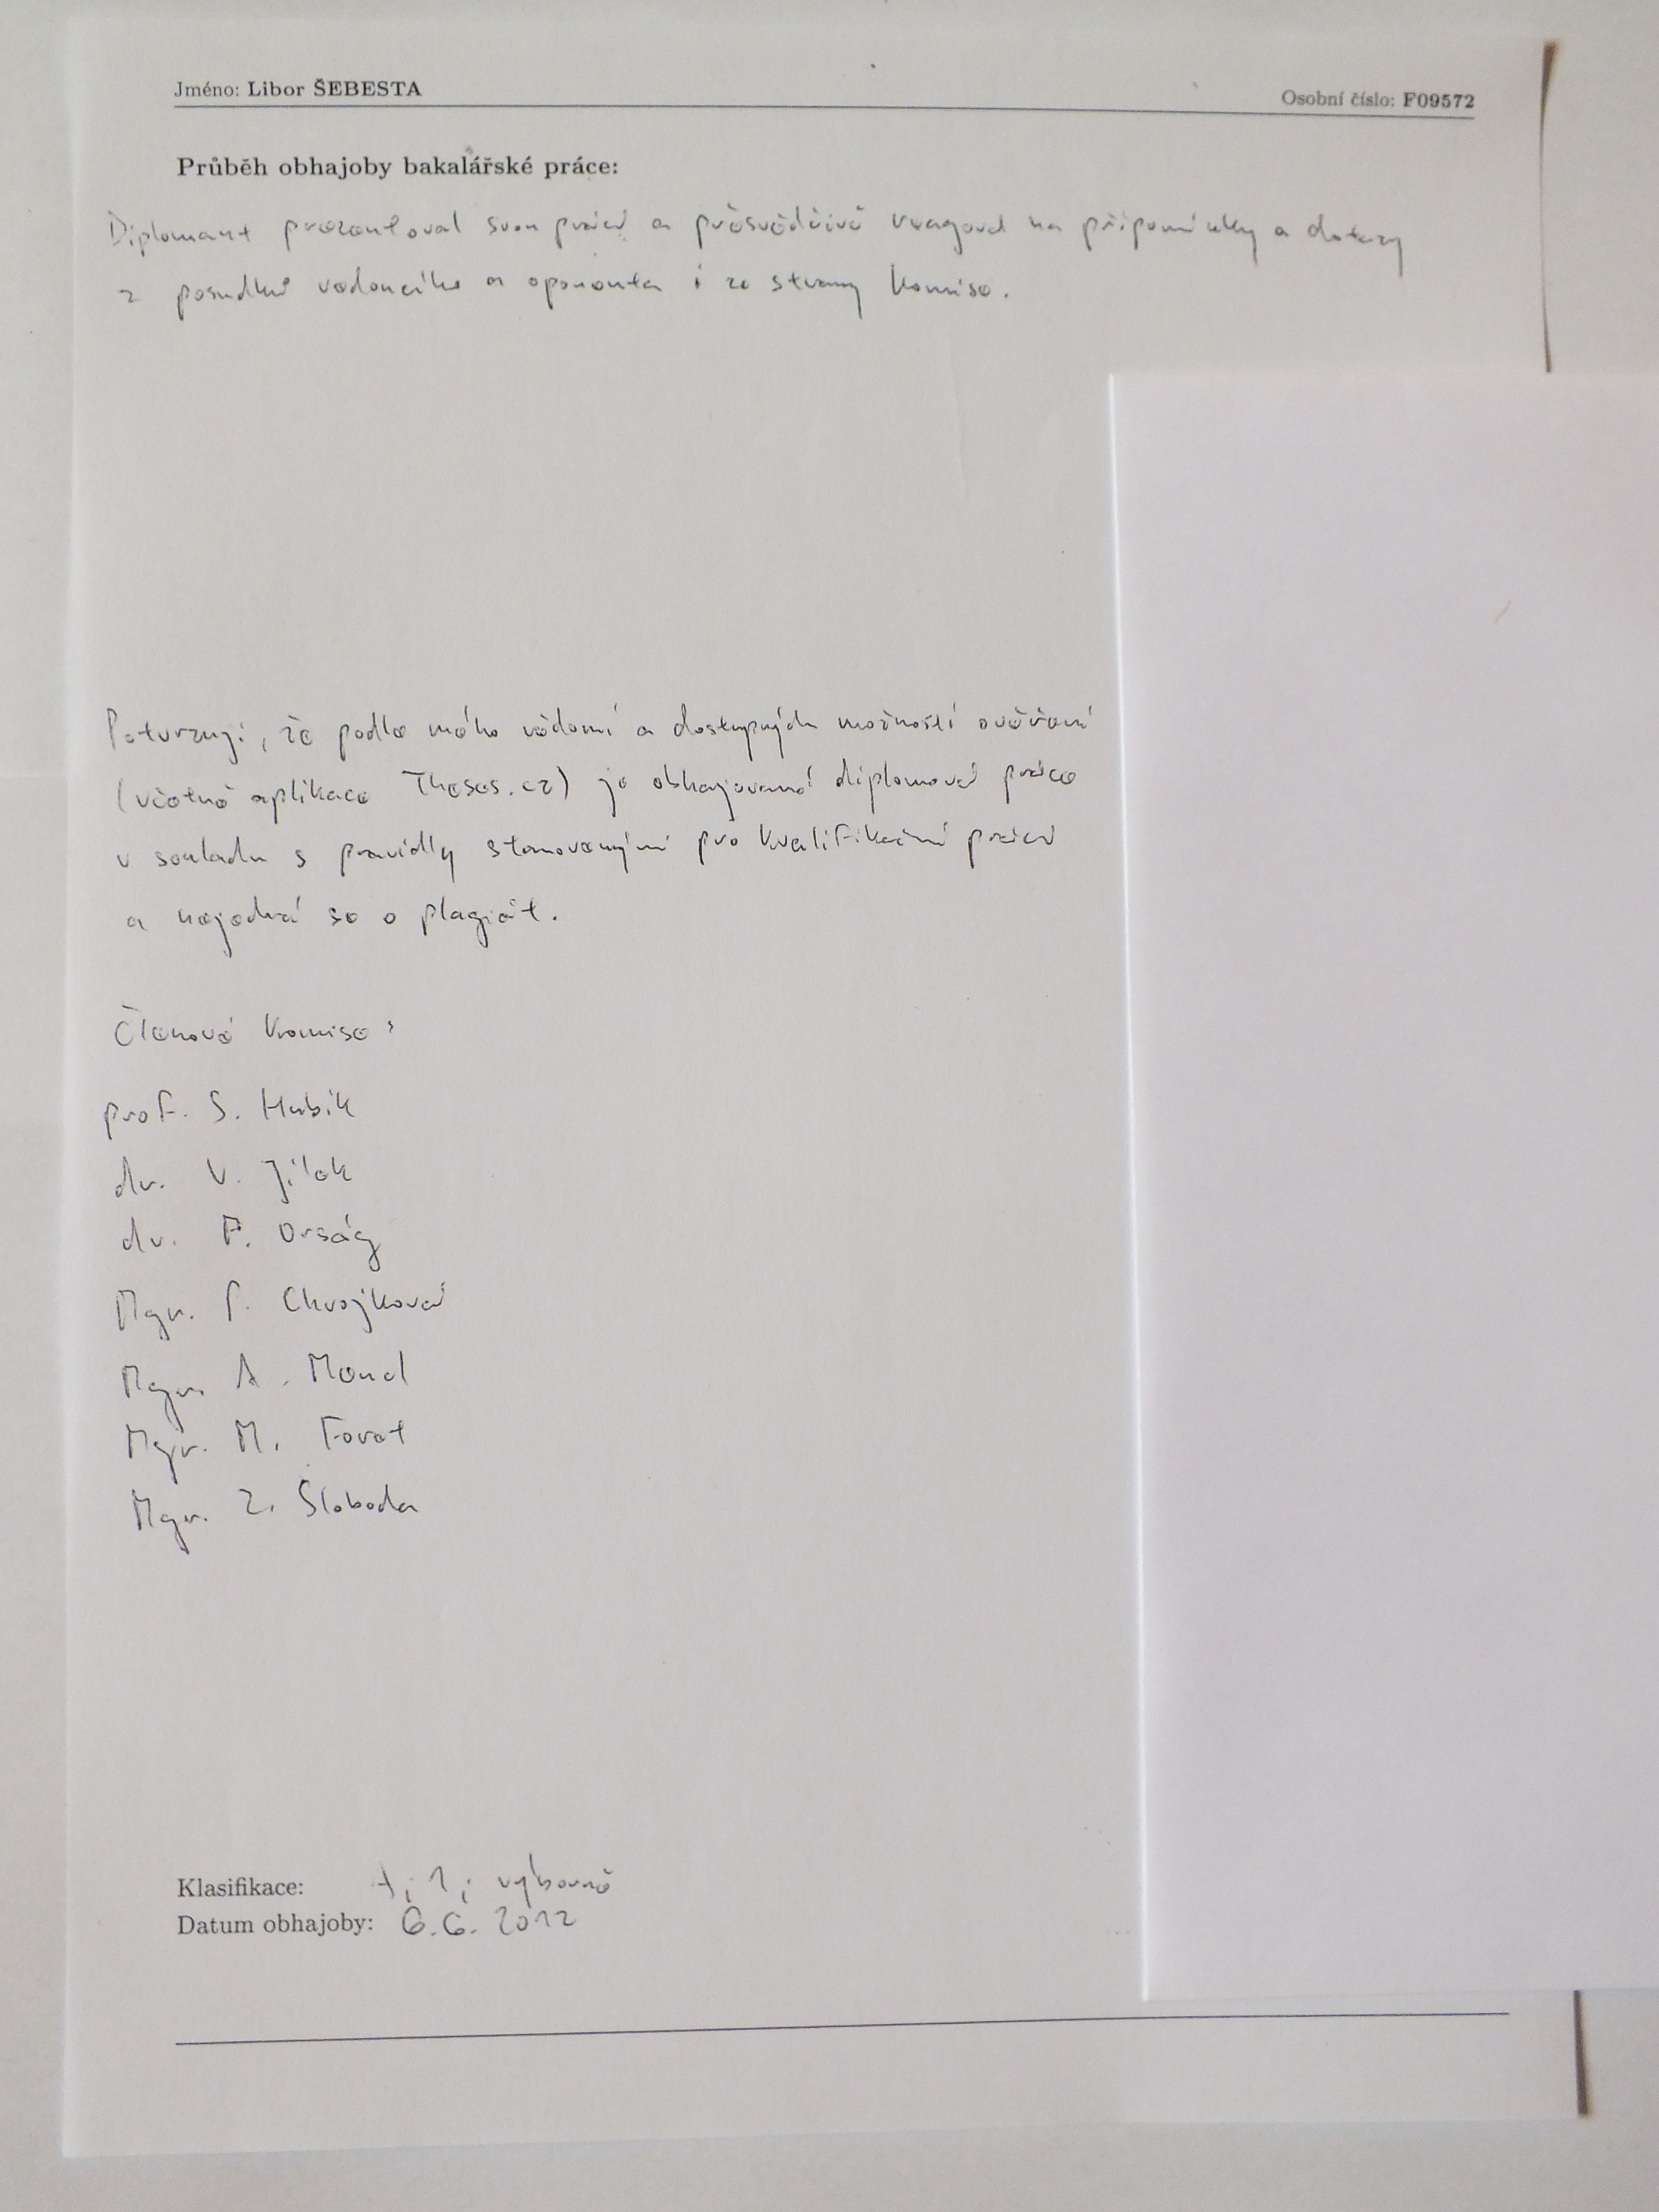 Jméno: Libor ŠEBESTA
Osobní číslo: F09572
Průběh obhajoby bakalářské práce:
Diplomant prezentoval svou práci a přesvědčivě reagoval na připomínky a dotazy
z posudků vedoucího a oponenta i ze strany komise.
Potvrzuji, že podle mého vědomí a dostupných možností ověření
(včetně aplikace Theses.cz) je obhajovaná diplomová práce
v souladu s pravidly stanovenými pro kvalifikační práci
a nejedná se o plagiát.
Členové komise:
prof. S. Hubík
dr. V. Jílek
dr. F. Orság
Mgr. P. Chvojková
Mgr. A. Mend
Mgr. M. Foret
Mgr. Z. Sloboda
Klasifikace: 1; výborně
Datum obhajoby: 6.6. 2012